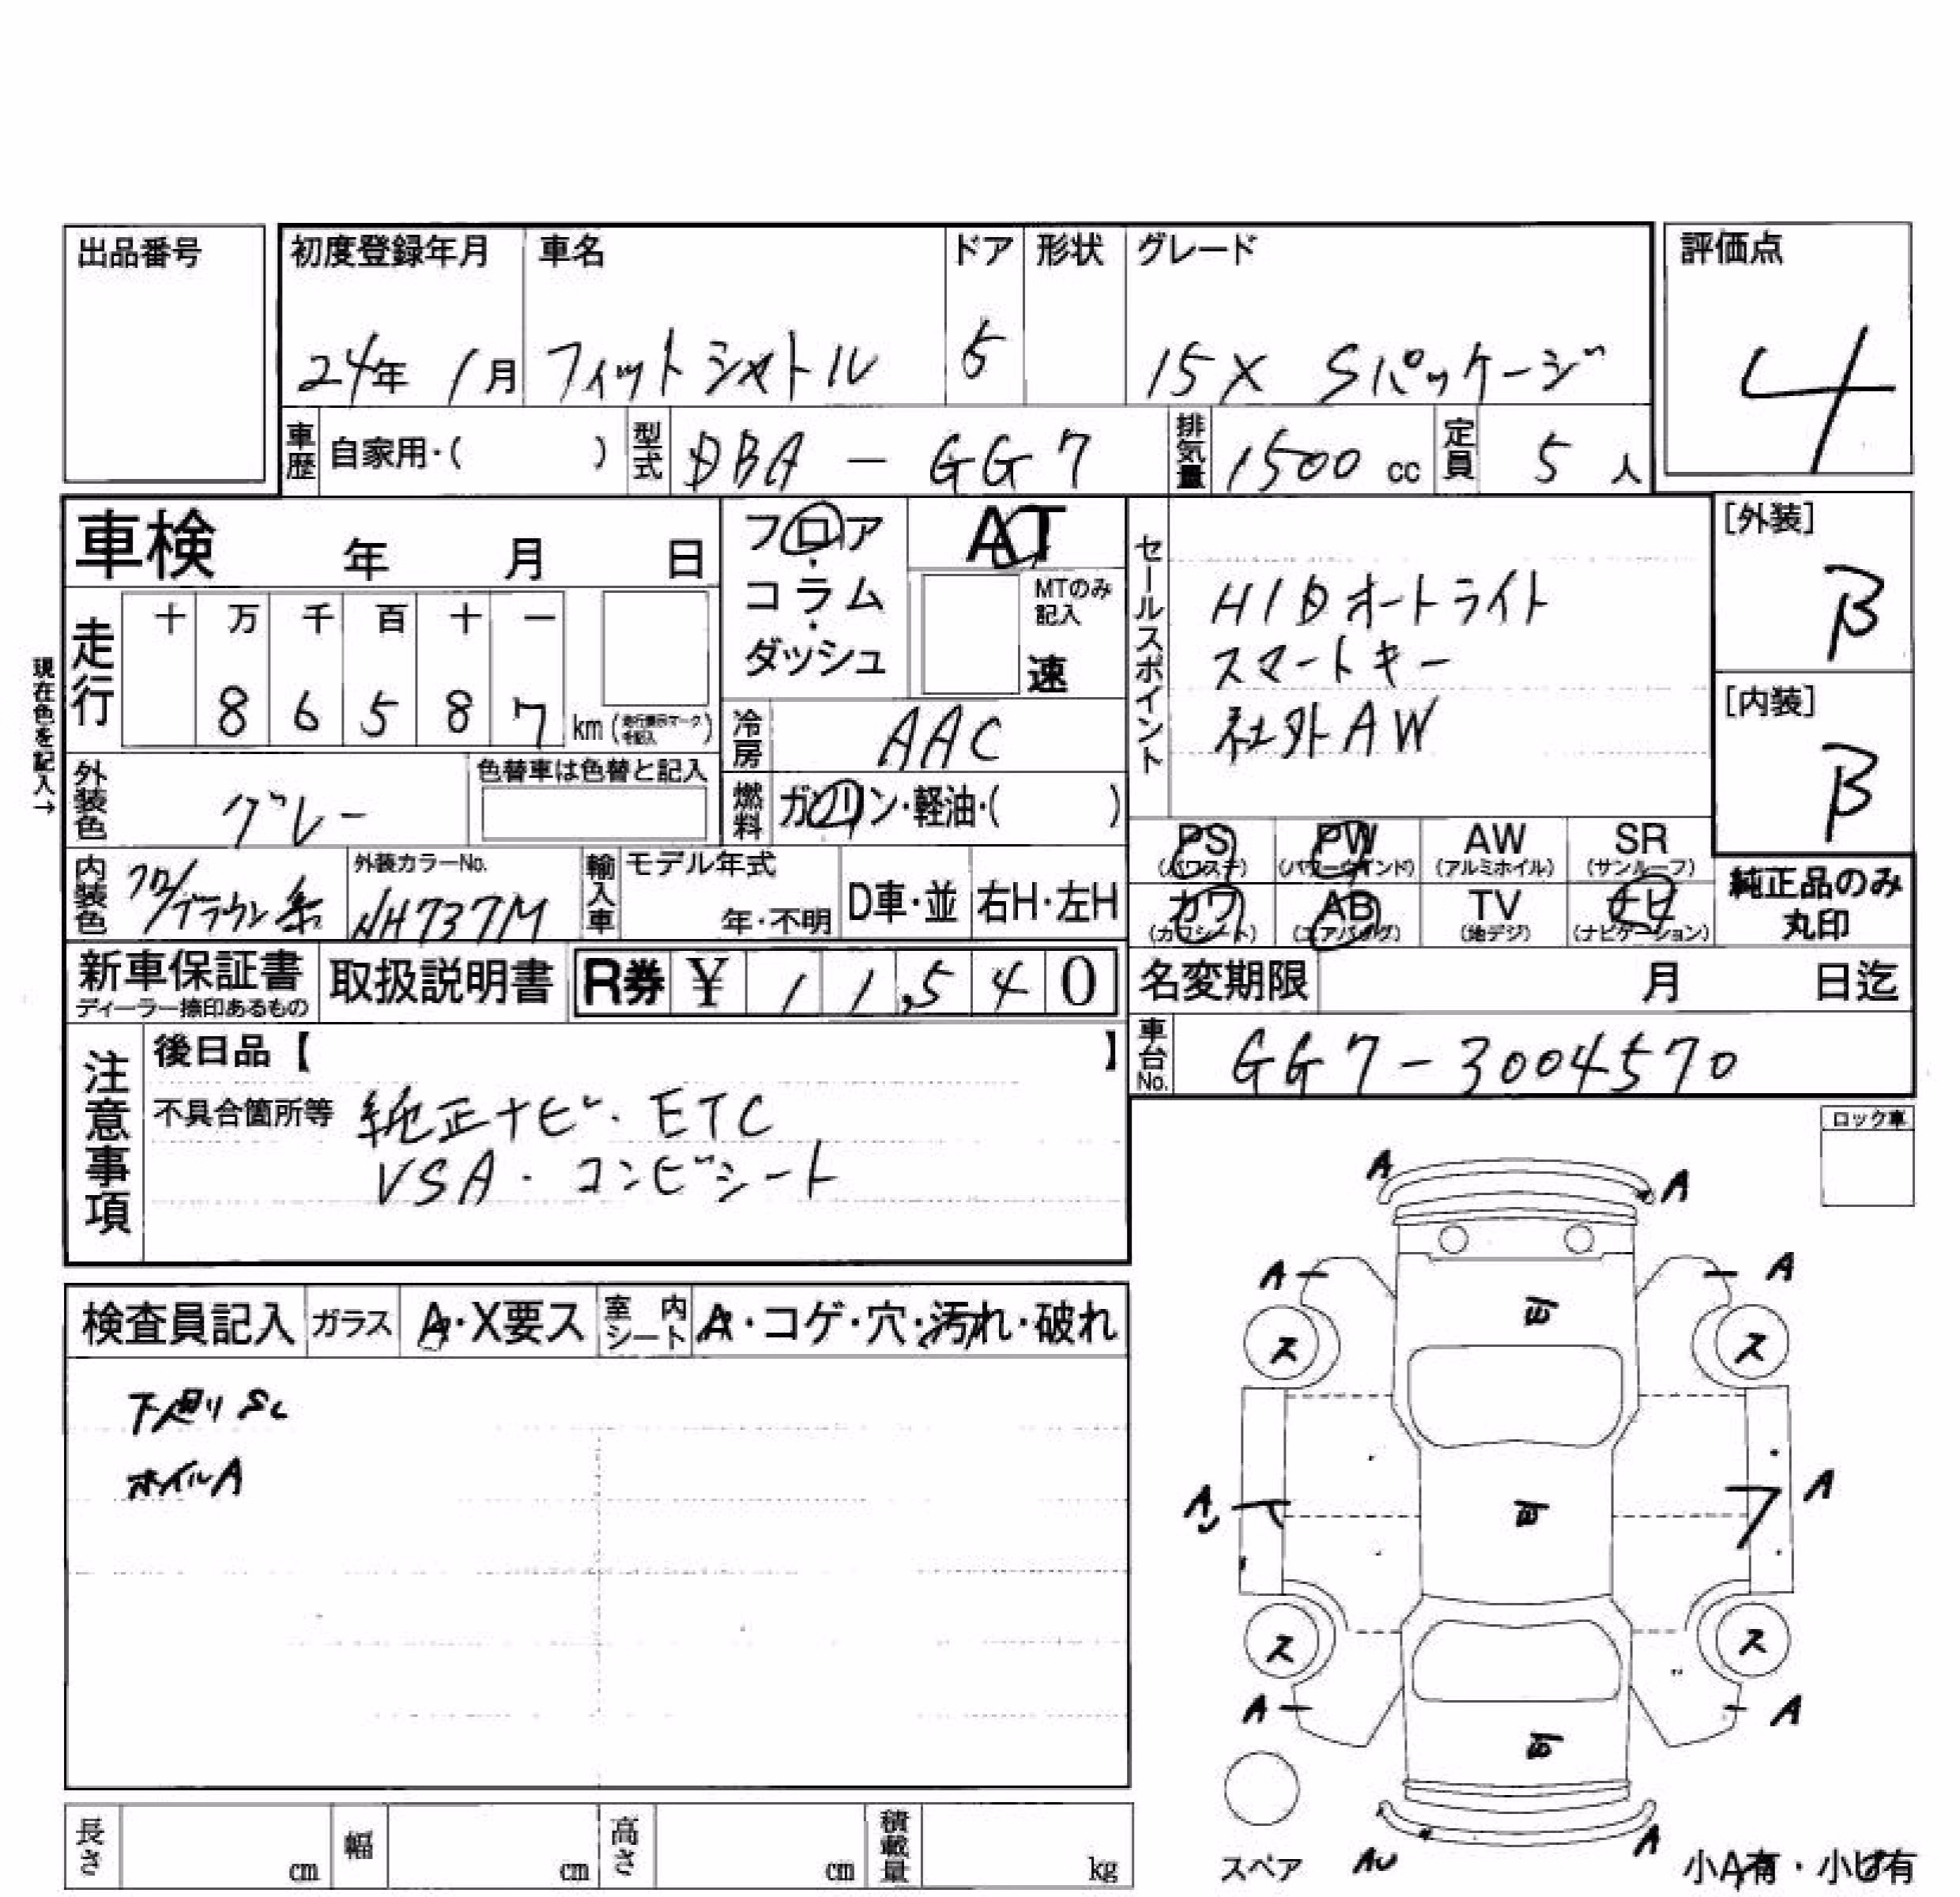 出品番号
初度登録年月 車名 ドア 形状 グレード 評価点
24年 1月 フィットシャトル 5 15X Sパッケージ 4
車歴 自家用・( ) 型式 DBA-GG7 排気量 1500 cc 定員 5 人
車検 年 月 日
フロア・コラム・ダッシュ
AT
MTのみ記入
速
セールスポイント
HIDオートライト
スマートキー
社外AW
[外装]
B
[内装]
B
現在色を記入→
走行 十 万 千 百 十 一
8 6 5 8 7 km
冷房 AAC
外装色 グレー 色替車は色替と記入
燃料 ガソリン・軽油・( )
内装色 クロ/ブラウン系 外装カラーNo. NH737M
輸入車 モデル年式 年・不明 D車・並 右H・左H
PS (パワステ) PW (パワーウインド) AW (アルミホイル) SR (サンルーフ)
カワ (カワシート) AB (エアバッグ) TV (地デジ) ナビ (ナビゲーション)
純正品のみ丸印
新車保証書 ディーラー捺印あるもの 取扱説明書 R券 ¥ 1 1,5 4 0
名変期限 月 日迄
車台No. GG7-3004570
注意事項
後日品【 】
不具合箇所等 純正ナビ・ETC
VSA・コンビシート
ロック車
検査員記入 ガラス A・X要ス 室内シート A・コゲ・穴・汚れ・破れ
下廻りS
ホイルA
A A
A A
ス ス
A A
ス ス
A A
スペア AU A 小A有・小U有
長さ cm 幅 cm 高さ cm 積載量 kg